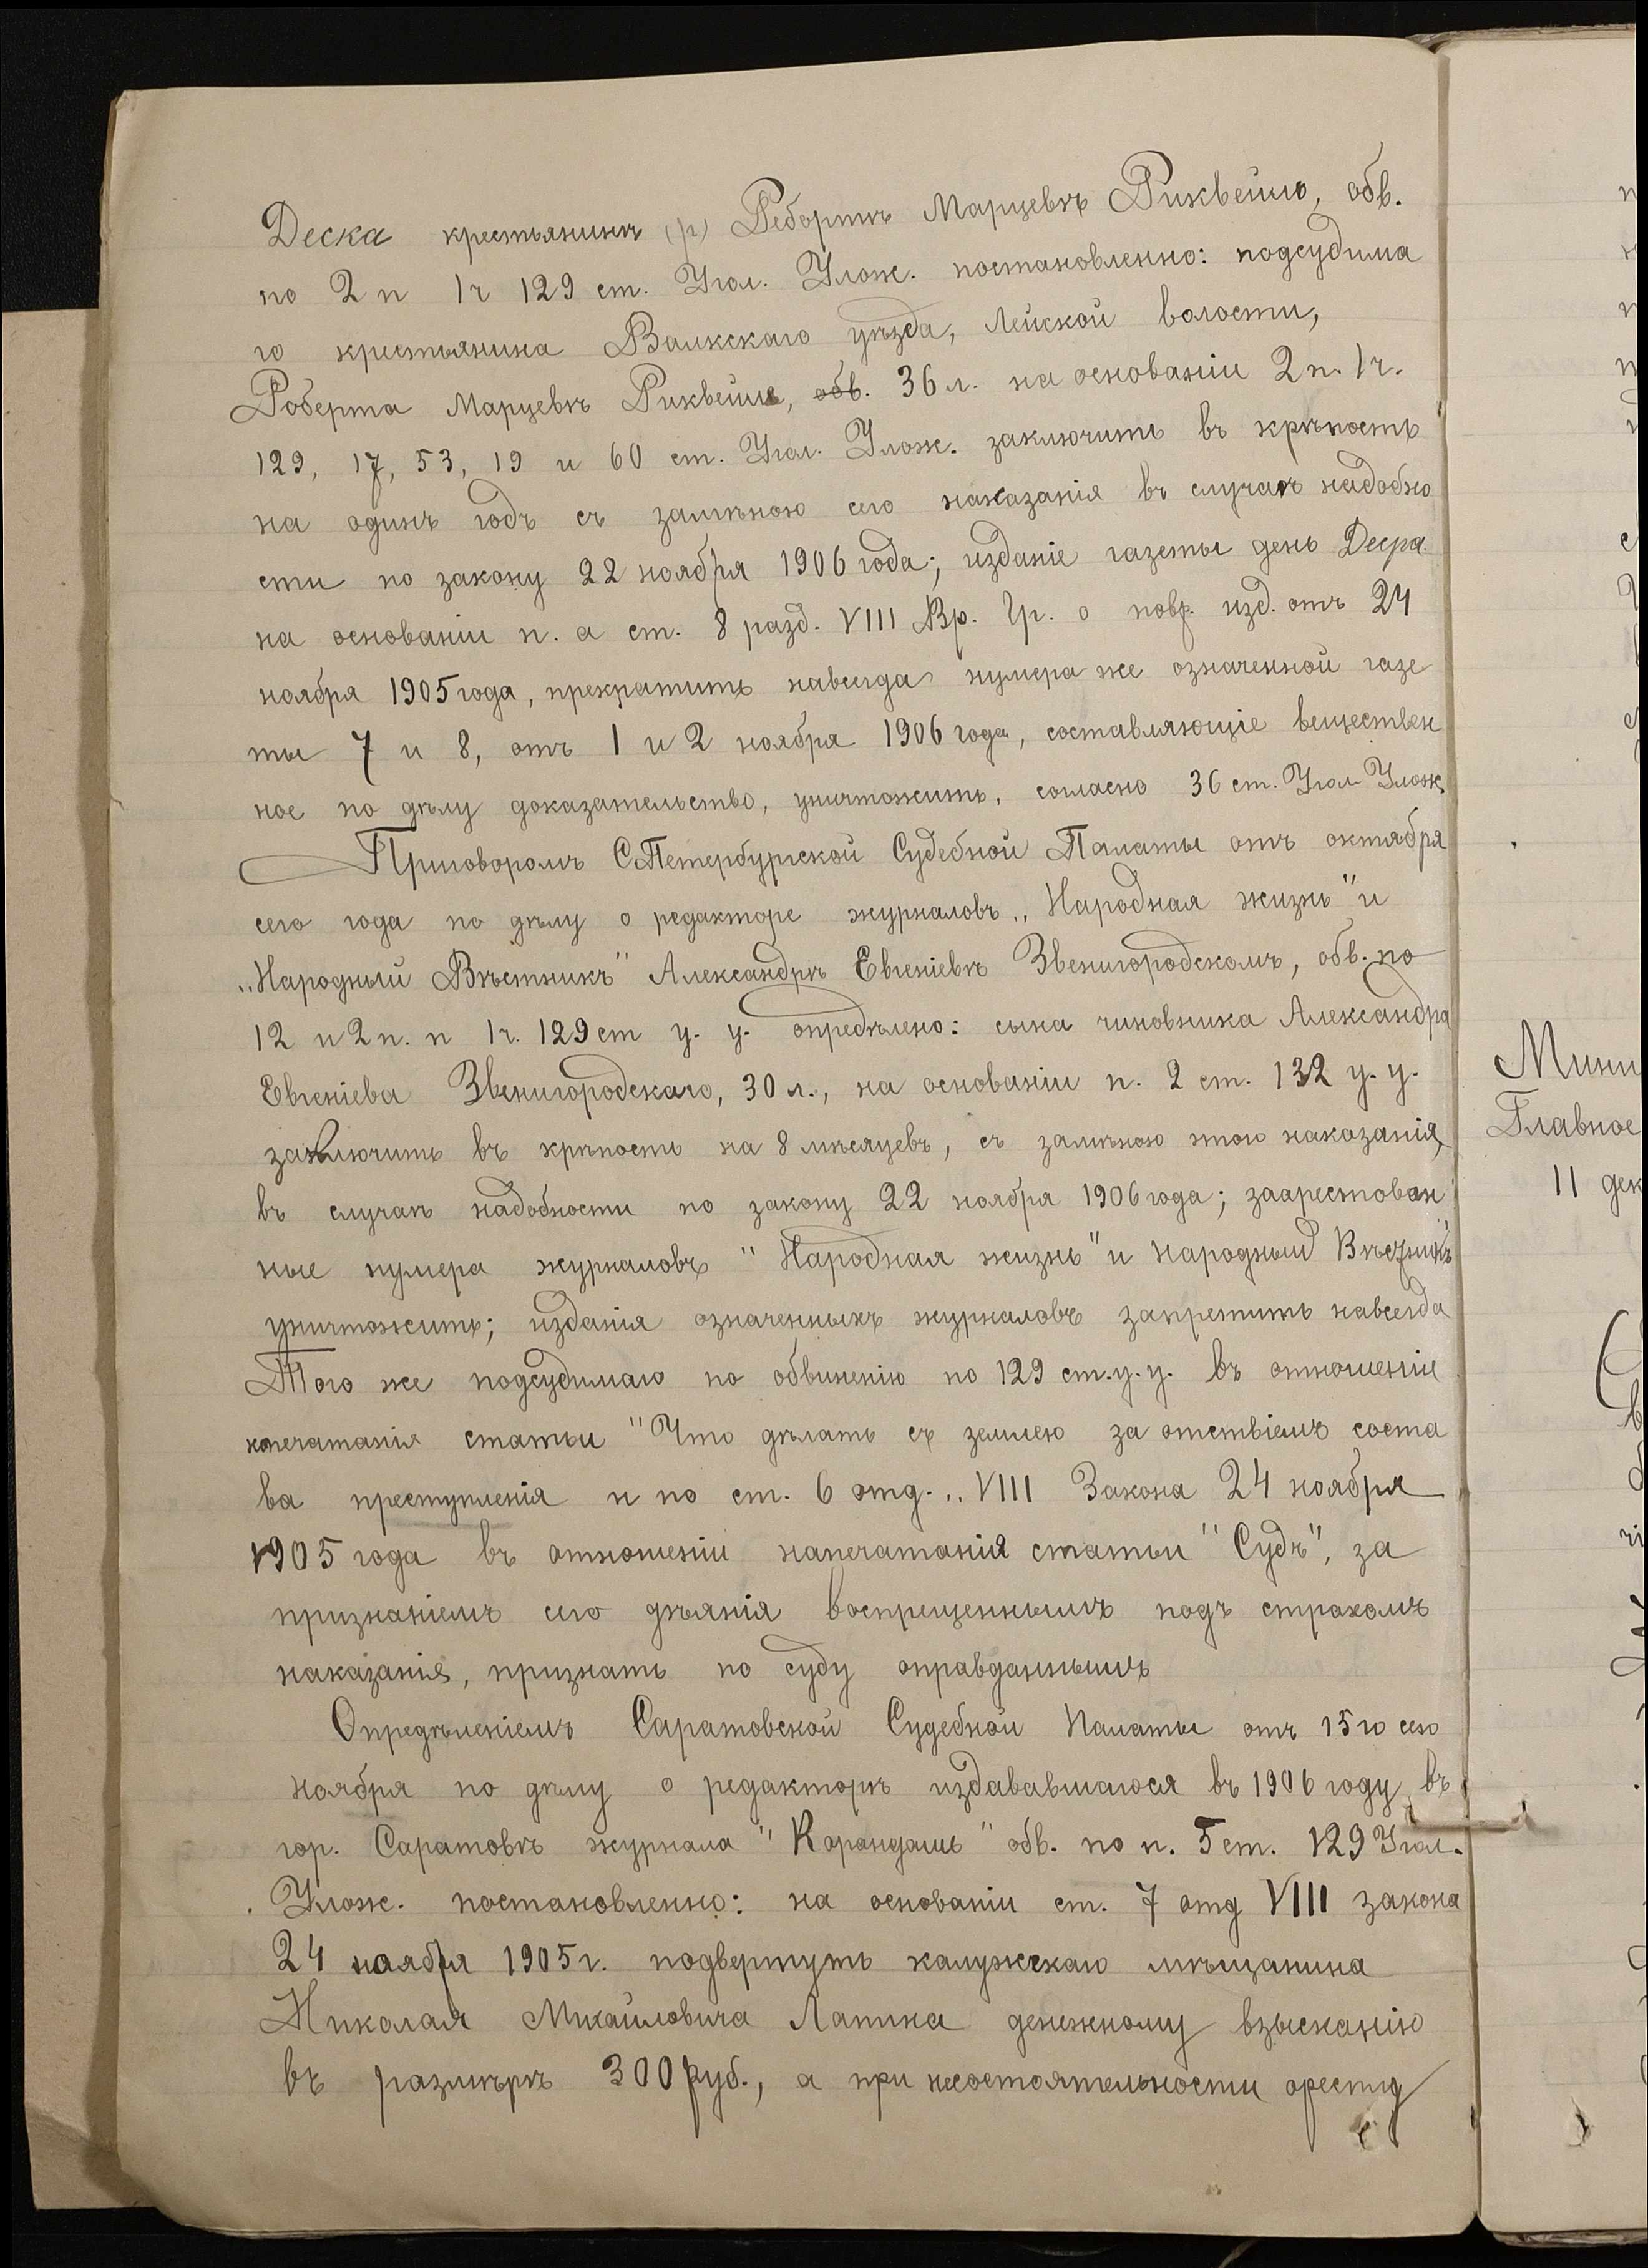 Деска крестьянинъ (р) Ребортъ Марцевъ Риквейль, обв.
по 2 п 1 ч 129 ст. Угол. Улож. постановленно: подсудима
го крестьянина Валкскаго уѣзда, Лейской волости,
Роберта Марцевъ Риквейля, обв. 36 л. на основаніи 2 п. 1 ч.
129, 17, 53, 19 и 60 ст. Угол. Улож. заключить въ крѣпость
на одинъ годъ съ замѣною сего наказанія въ случаѣ надобно
сти по закону 22 ноября 1906 года; изданіе газеты день Десра
на основаніи п. а ст. 8 разд. VIII Вр. Пр. о повр. изд. отъ 24
ноября 1905 года, прекратить навсегда нумера же означенной газе
ты 7 и 8, отъ 1 и 2 ноября 1906 года, составляющіе веществен
ное по дѣлу доказательство, уничтожить, согласно 36 ст. Угол Улож.
Приговоромъ С.Петербургской Судебной Палаты отъ октября
сего года по дѣлу о редакторе журналовъ „Народная жизнь" и
„Народный Вѣстникъ" Александръ Евгеніевъ Звенигородскомъ, обв. по
12 и 2 п. п 1 ч. 129 ст у. у. опредѣлено: сына чиновника Александра
Евгеніева Звенигородскаго, 30 л., на основаніи п. 2 ст. 132 у. у.
заключить въ крѣпость на 8 мѣсяцевъ, съ замѣною этого наказанія,
въ случаѣ надобности по закону 22 ноября 1906 года; заарестован
ные нумера журналовъ "Народная жизнь" и Народный Вѣстникъ"
уничтожить; изданія означенныхъ журналовъ запретить навсегда
Того же подсудимаго по обвиненію по 129 ст. у. у. въ отношеніи
напечатанія статьи "Что дѣлать съ землею за отствіемъ соста
ва преступленія и по ст. 6 отд. „VIII Закона 24 ноября
1905 года въ отношеніи напечатанія статьи "Судъ", за
признаніемъ сего дѣянія воспрещеннымъ подъ страхомъ
наказанія, признать по суду оправданнымъ
Опредѣленіемъ Саратовской Судебной Палаты отъ 15 го сего
ноября по дѣлу о редакторѣ издававшагося въ 1906 году въ
гор. Саратовѣ журнала "Карандашъ" обв. по п. 5 ст. 129 Угол.
Улож. постановленно: на основаніи ст. 7 отд VIII закона
24 ноября 1905 г. подвергнуть калужскаго мѣщанина
Николая Михаиловича Лапина денежному взысканію
въ размѣрѣ 300 руб., а при несостоятельности аресту
Мини
Главное
11 дек